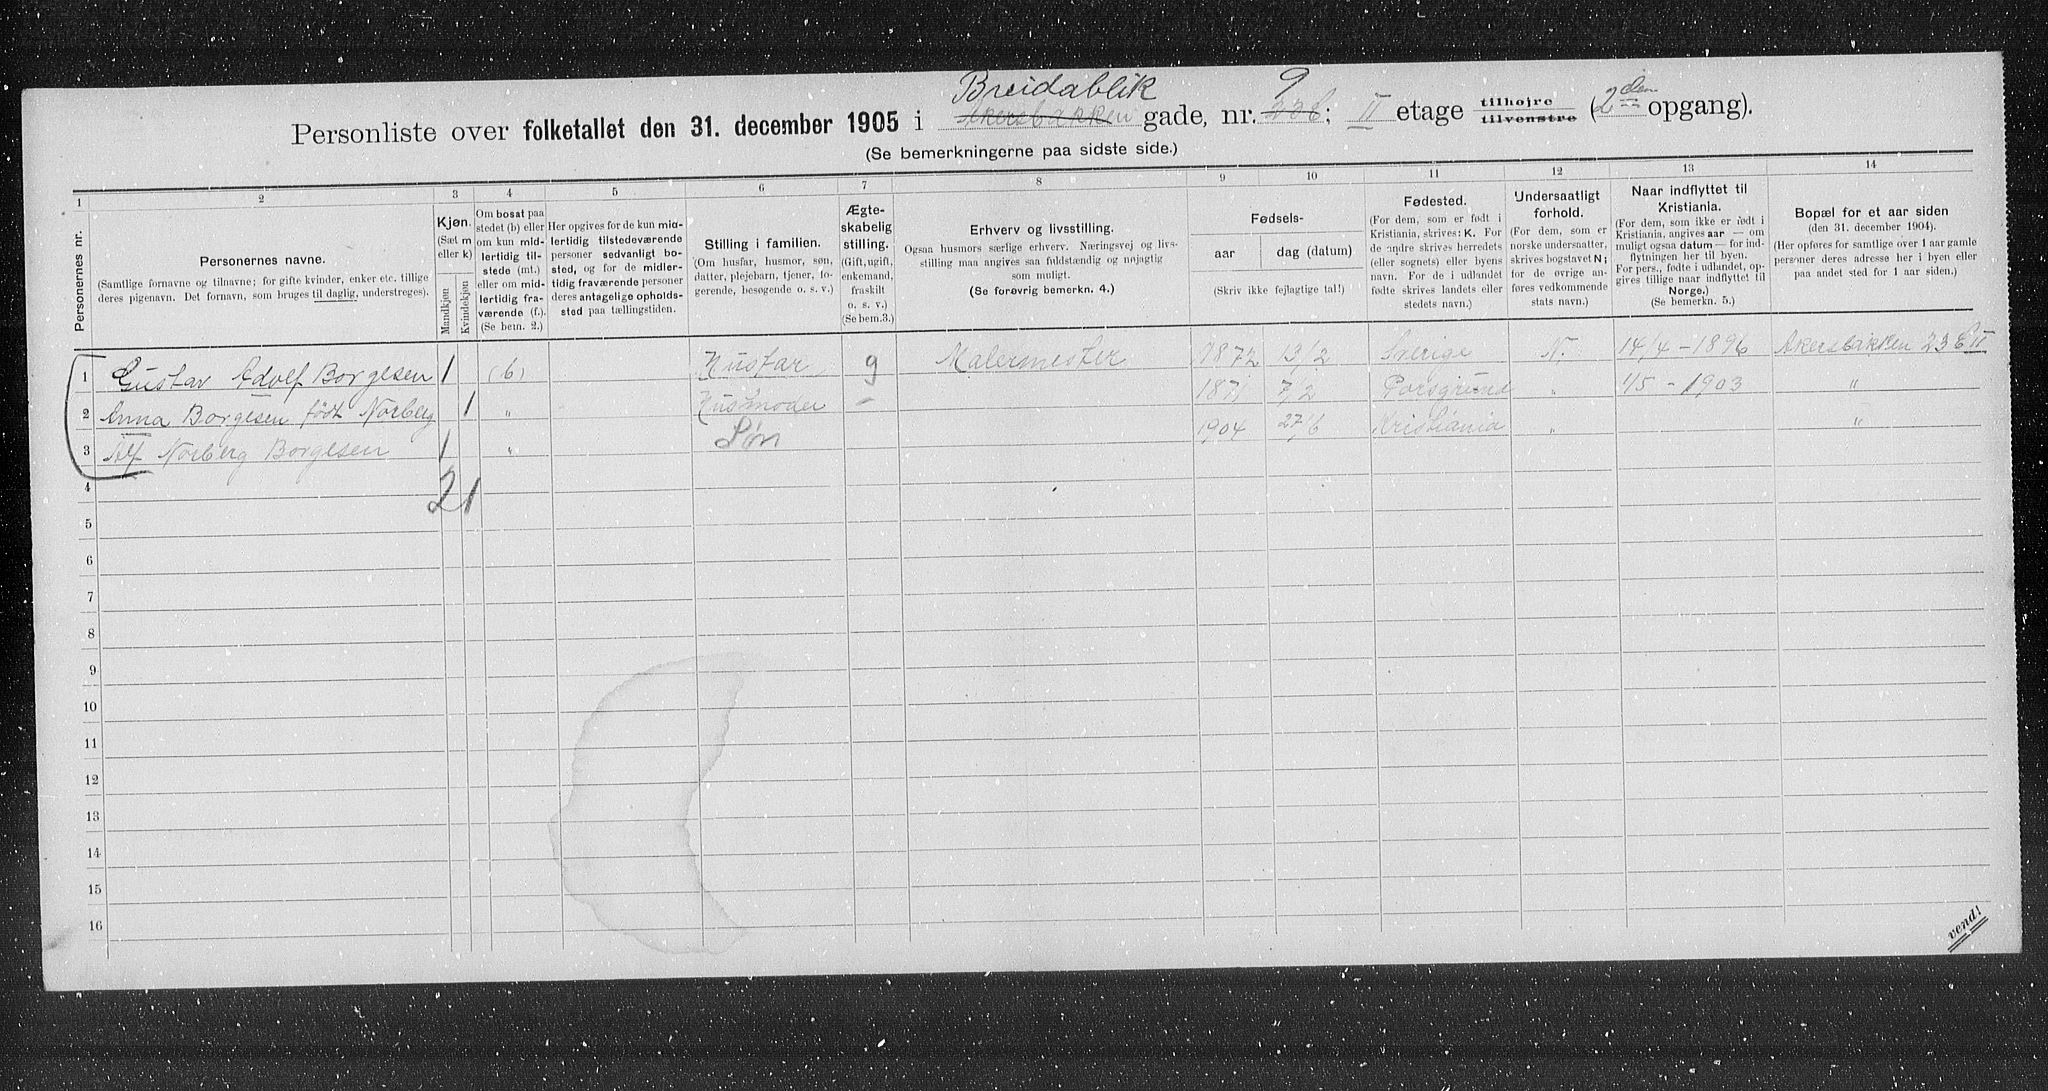 Breidablik 9
Personliste over folketallet den 31. december 1905 i Akersbakken gade, nr. 23b; II etage tilhøjre tilvenstre (2den opgang).
(Se bemerkningerne paa sidste side.)
1 2 3 4 5 6 7 8 9 10 11 12 13 14
Personernes nr.
Personernes navne.
(Samtlige fornavne og tilnavne; for gifte kvinder, enker etc. tillige
deres pigenavn. Det fornavn, som bruges til daglig, understreges).
Kjøn.
(Sæt m
eller k)
Mandkjøn
Kvindekjøn
Om bosat paa
stedet (b) eller
om kun mid-
lertidig til-
stede (mt.)
eller om mid-
lertidig fra-
værende (f.).
(Se bem. 2.)
Her opgives for de kun mid-
lertidig tilstedeværende
personer sedvanligt bo-
sted, og for de midler-
tidig fraværende personer
deres antagelige opholds-
sted paa tællingstiden.
Stilling i familien.
(Om husfar, husmor, søn,
datter, plejebarn, tjener, lo-
gerende, besøgende o. s. v.)
Ægte-
skabelig
stilling.
(Gift, ugift,
enkemand,
fraskilt
o. s. v.)
(Se bem.3.)
Erhverv og livsstilling.
Ogsaa husmors særlige erhverv. Næringsvej og livs-
stilling maa angives saa fuldstændig og nøjagtig
som muligt.
(Se forøvrig bemerkn. 4.)
Fødsels-
aar dag (datum)
(Skriv ikke fejlagtige tal!)
Fødested.
(For dem, som er født i
Kristiania, skrives: K. For
de andre skrives herredets
(eller sognets) eller byens
navn. For de i udlandet
fødte skrives landets eller
stedets navn.)
Undersaatligt
forhold.
(For dem, som er
norske undersaatter,
skrives bogstavet N;
for de øvrige an-
føres vedkommende
stats navn.)
Naar indflyttet til
Kristiania.
(For dem, som ikke er født i
Kristiania, angives aar — om
muligt ogsaa datum — for ind-
flytningen her til byen.
For pers., fødte i udlandet, op-
gives tillige naar indflyttet til
Norge.)
(Se bemerkn. 5.)
Bopæl for et aar siden
(den 31. december 1904).
(Her opføres for samtlige over 1 aar gamle
personer deres adresse her i byen eller
paa andet sted for 1 aar siden.)
1 Gustav Adolf Borgesen 1 (b) Husfar g Malermester 1872 13/2 Sverige N. 14/4 - 1896 Akersbakken 23 b II
2 Anna Borgesen født Norberg 1 " Husmoder - 1871 7/2 Porsgrund " 1/5 - 1903 "
3 Alf Norberg Borgesen 1 " Søn 1904 27/6 Kristiania " "
4 2 1
5
6
7
8
9
10
11
12
13
14
15
16
vend!